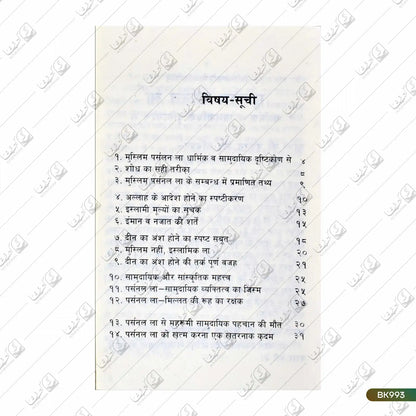 विषय-सूची
१. मुस्लिम पर्सनल ला धार्मिक व सामुदायिक दृष्टिकोण से ४
२. शोध का सही तरीका ८
३. मुस्लिम पर्सनल ला के सम्बन्ध में प्रमाणित तथ्य ९
४. अल्लाह के आदेश होने का स्पष्टीकरण १०
५. इस्लामी मूल्यों का सूचक १३
६. ईमान व नजात की शर्त १५
७. दीन का अंश होने का स्पष्ट सबूत १८
८. मुस्लिम नहीं, इस्लामिक ला २०
९. दीन का अंश होने की तर्क पूर्ण वजह २१
१०. सामुदायिक और सांस्कृतिक महत्त्व २५
११. पर्सनल ला—सामुदायिक व्यक्तित्व का जिस्म २५
१२. पर्सनल ला—मिल्लत की रूह का रक्षक २७
१३. पर्सनल ला से महरूमी सामुदायिक पहचान की मौत ३०
१४. पर्सनल ला को खत्म करना एक खतरनाक कदम ३१
BK993